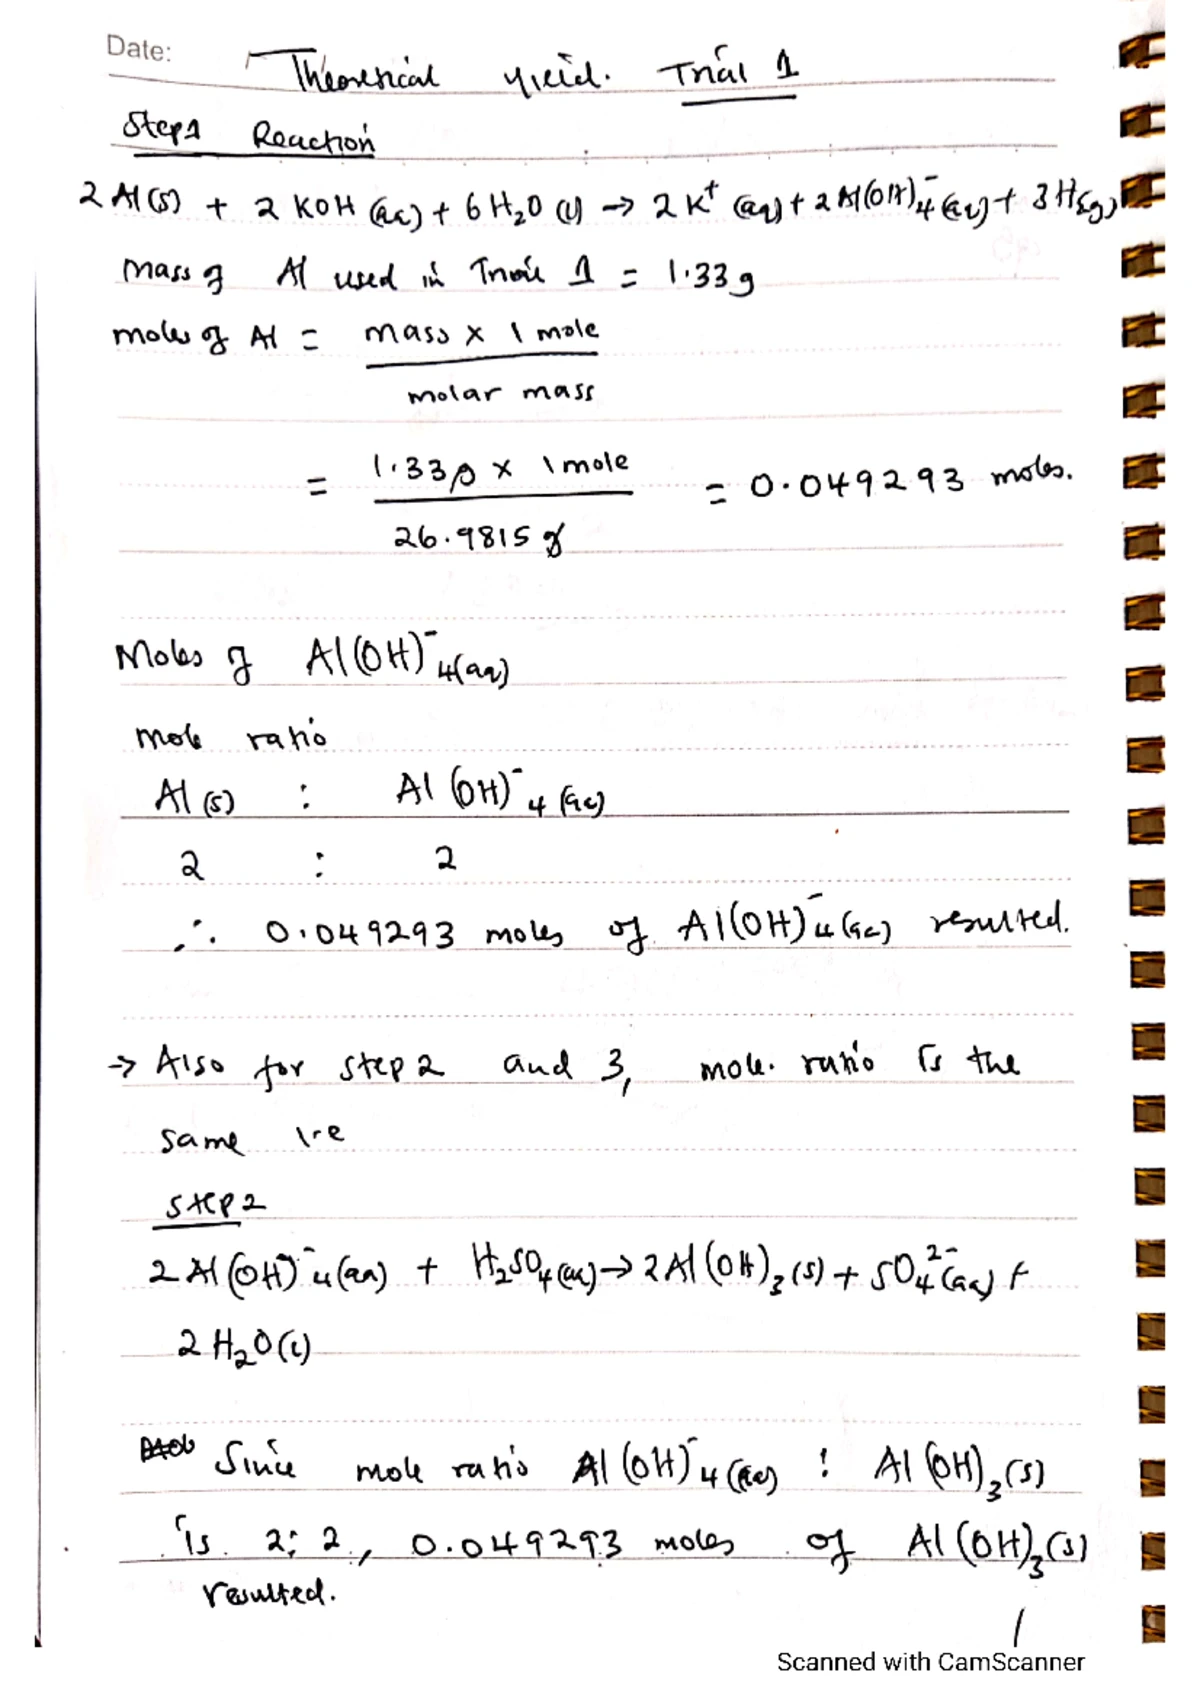 Date:
Theoretical yield. Trial 1
Step 1 Reaction
2 Al(s) + 2 KOH (aq) + 6 H₂O (l) → 2 K⁺ (aq) + 2 Al(OH)₄⁻(aq) + 3 H₂(g)
mass of Al used in Trial 1 = 1.33 g
moles of Al = mass x 1 mole
molar mass
= 1.33g x 1 mole = 0.049293 moles.
26.9815 g
Moles of Al(OH)⁻₄(aq)
mole ratio
Al (s) : Al (OH)⁻₄ (aq)
2 : 2
∴ 0.049293 moles of Al(OH)⁻₄(aq) resulted.
→ Also for step 2 and 3, mole. ratio is the
same i.e
step 2
2 Al(OH)⁻₄(aq) + H₂SO₄(aq) → 2 Al(OH)₃(s) + SO₄²⁻(aq) +
2 H₂O(l)
Since mole ratio Al(OH)⁻₄(aq) : Al(OH)₃(s)
is 2:2, 0.049293 moles of Al(OH)₃(s)
resulted.
1
Scanned with CamScanner